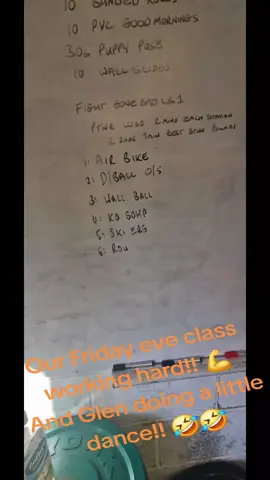 10 BANDED ROWS
10 PVC GOOD MORNINGS
30s PUPPY POSE
10 WALL SLIDES
FIGHT GONE BAD
PTNR WOD 2 RNDS EACH STATION
2 RNDS 1 MIN REST
1: AIR BIKE
2: D/BALL O/S
3: WALL BALL
4: KB
5: SKI ERG
6: ROW
Our Friday eve class
working hard!! 💪
And Glen doing a little
dance!! 🤣🤣